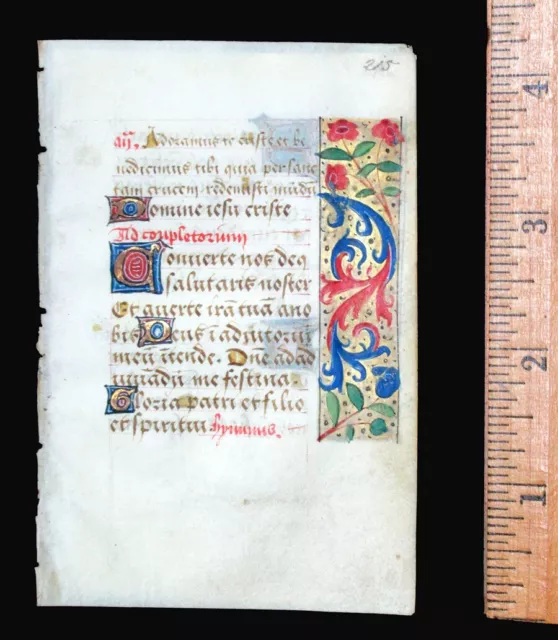 215
añ. Adoramus te cr̃iste et be
nedicimus tibi quia per sanc
tam crucem redemisti mũdũ
Domine iesu criste
Ad completorium
Converte nos deꝰ
salutaris noster
Et averte irã tuã a no
bis Deus ĩ adiutoriũ
meũ ĩtende. Dñe ad ad
iuvãdũ me festina
Gloria patri et filio
et spiritui hymnus.
1
2
3
4